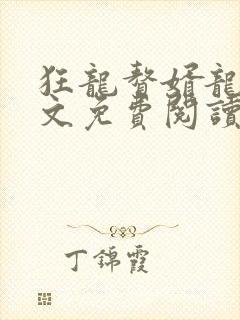 狂龍贅婿龍
文免費閱讀
丁錦霞